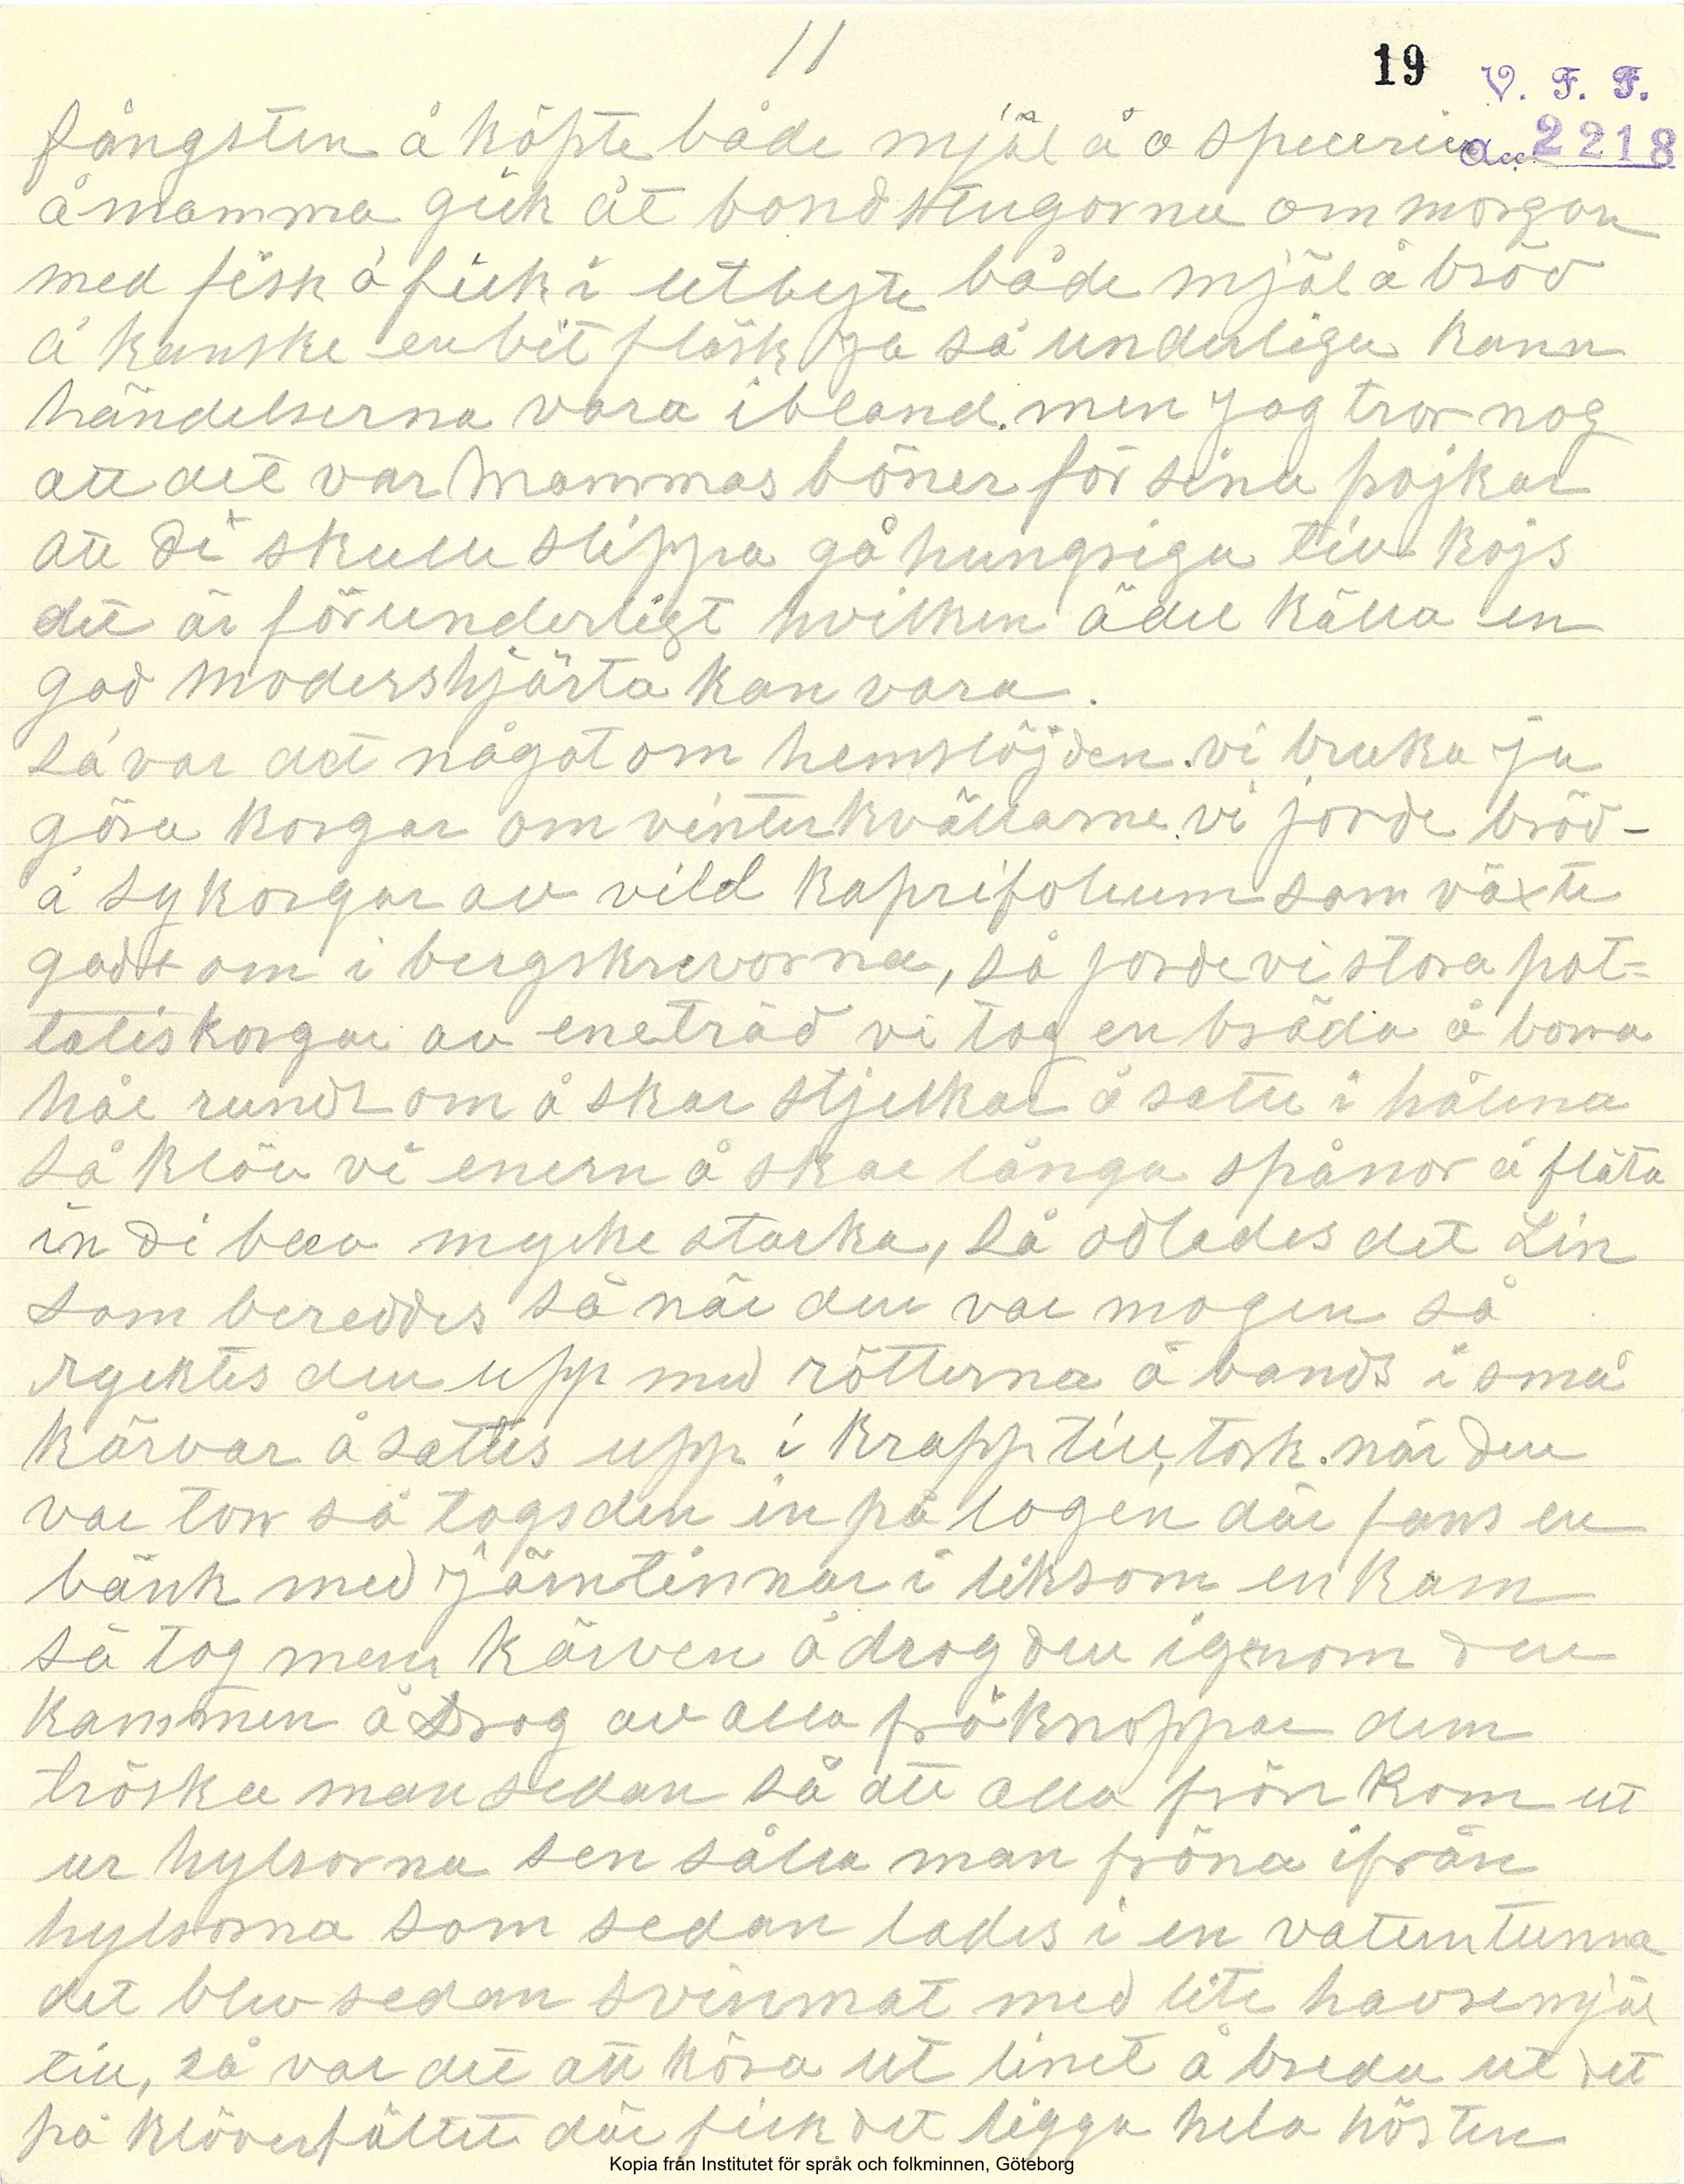 11
19 V. F. F.
fångsten å köpte både mjöl å specerier acc. 2218
å mamma gick åt bondstugorna om morgon
med fisk å fick i utbyte både mjöl å bröd
å kanske en bit fläsk ja så underliga kann
händelserna vara ibland. men jag tror nog
att det var Mammas böner för sina pojkar
att di skulle slippa gå hungriga till kojs
det är förunderligt hvilken ädel källa en
god modershjärta kan vara.
Så var det något om hemslöjden. vi bruka ju
göra korgar om vinterkvällarne. vi jorde bröd-
å sykorgar av vild kaprifolium som växte
godt om i bergskrevorna, så jorde vi stora pot=
tatiskorgar av eneträd vi tog en bräda å borra
hål rundt om å skar stjelkar å satte i hålena
så klöv vi enern å skar långa spånor å fläta
in di blev mycke starka, så odlades det Lin
som bereddes så när den var mogen så
rycktes den upp med rötterna å bands i små
kärvar å sattes upp i krapp till tork. när den
var torr så togs den in på logen där fans en
bänk med järntinnar i liksom en kam
så tog men kärven å drog den igenom den
kammen å drog av alla fröknoppar dem
tröska man sedan så att alla frön kom ut
ur hylsorna sen sålla man fröna ifrån
hylsorna som sedan lades i en vatentunna
det blev sedan svinmat med lite havremjöl
till, så var det att köra ut linet å breda ut det
på klöverfältet där fick det ligga hela hösten
Kopia från Institutet för språk och folkminnen, Göteborg